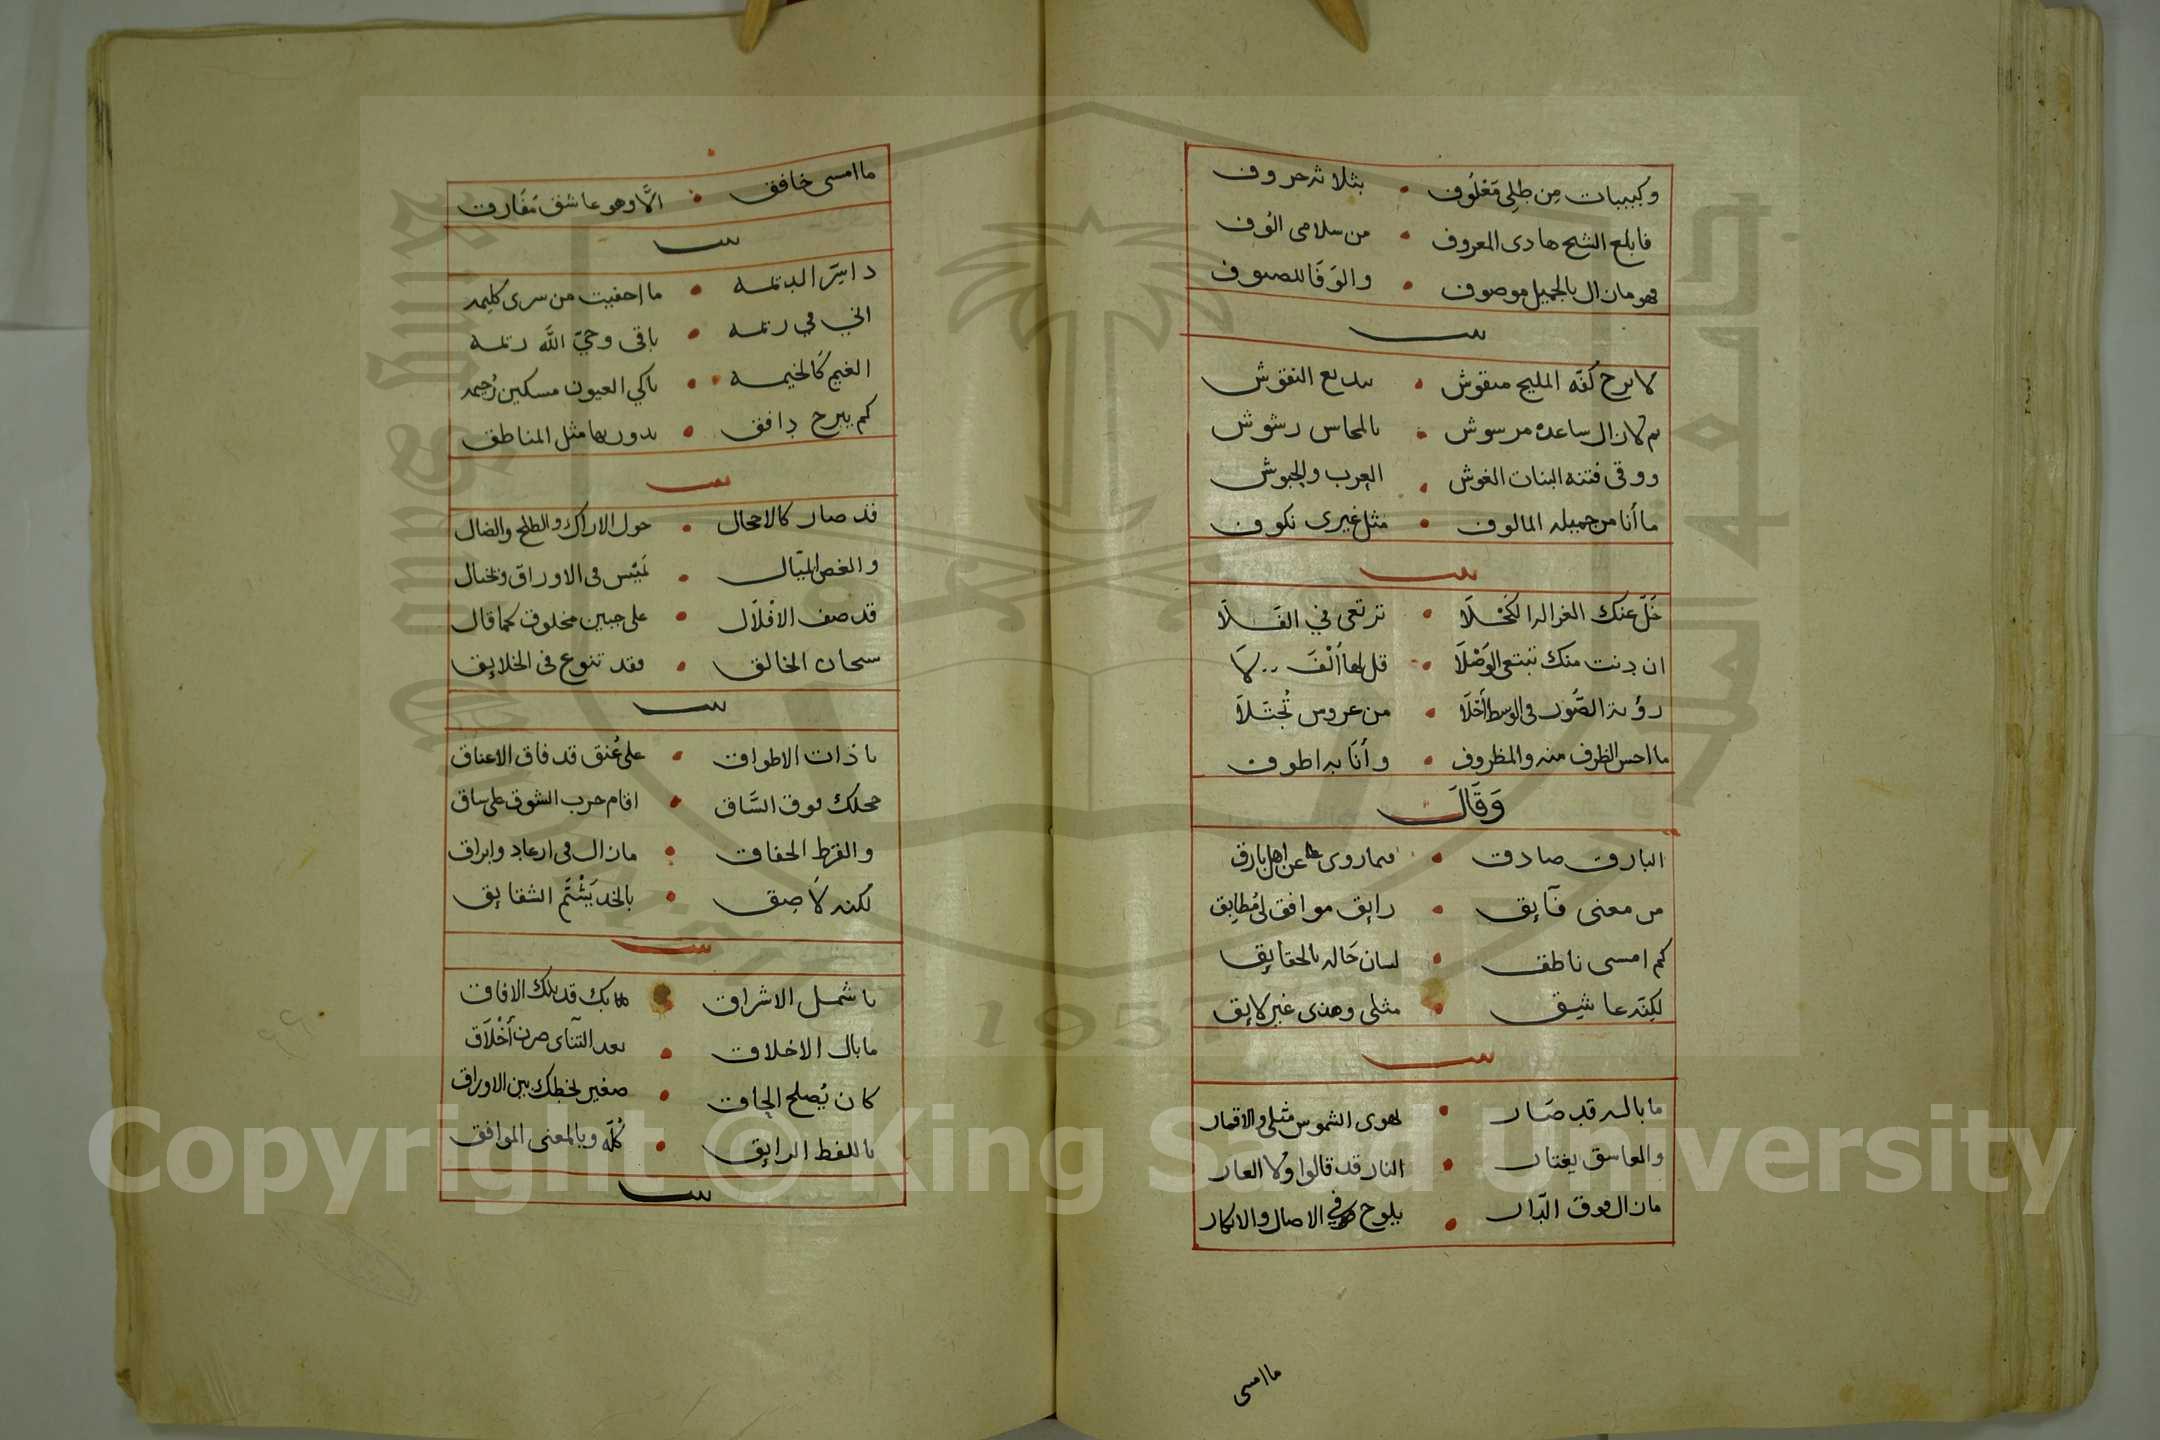 وكبيبات من طلى مغلوف • بثلاثه حروف
فابلغ الشيخ هادى المعروف • من سلامى الوف
فهو مازال بالجميل موصوف • والوفا للصيوف
بيت
لا برح كفه المليح منقوش • ببديع النقوش
ثم لا زال ساعده مرسوش • بالمحاسن رشوش
ووقى فتنه البنات الغوش • العرب والحبوش
ما أنا من جميله المالوف • مثل غيرى نكوف
بيت
خلّ عنك الغزاله الكَحْلَا • ترتعى في الفَلَا
ان دنت منك تبتغى الوَصْلَا • قل لها أَلْفَ لَا
رؤية الصَّوْن فى الوسط أحْلَا • من عروس تُجتَلَا
ما احسن الظرف منه والمظروف • وأنا به اطوف
وَقَالَ
البارق صادق • فيما روى عن اهل بارق
من معنى فآيق • رايق موافق لى مُطابق
كم امسى ناطق • لسان حَاله بالحقايق
لكنّه عاشق • مثلى وهذى غير لايق
بيت
ما باله قد صَار • يهوى الشموس مثلى والاقمار
والعاشق يختار • النار قد قالوا ولا العار
مازال فوق الدار • يلوح فى الاصال والابكار
ما امسى
ما امسى خافق • الَّا وهو عاشق مفارق
بيت
داير الديمه • ما احفيت من سرى كليمه
اني في ريمه • باقى وحيّ الله ريمه
الغيم كَالخيمه • باكي العيون مسكين رُحيمه
كم يبرح دافق • يدور بها مثل المناطق
بيت
قد صار كالاحجال • حول الاراك والطلح والضال
والغصن الميّال • يَميّس فى الاوراق ويختال
قد صف الاقلال • على جبين مخلوق كما قال
سبحان الخالق • فقد تنوع فى الخلايق
بيت
يا ذات الاطواق • على عُنق قد فاق الاعناق
حجلك فوق السَّاق • اقام حرب الشوق على ساق
والقرط الخفاق • مازال فى ارعاد وابراق
لكنه لَاصِق • بالخد يَشْتَم الشقايق
بيت
يا شمل الاشراق • كتابك قد بلك الافاق
ما بال الاخلاق • بعد التنآى صرن أَخْلَاق
كان يُصلح الحاق • صغير بخطك بين الاوراق
باللفظ الرايق • كُلّه وبالمعنى الموافق
بيت
جامعة الملك سعود
King Saud University
1957
Copyright © King Saud University